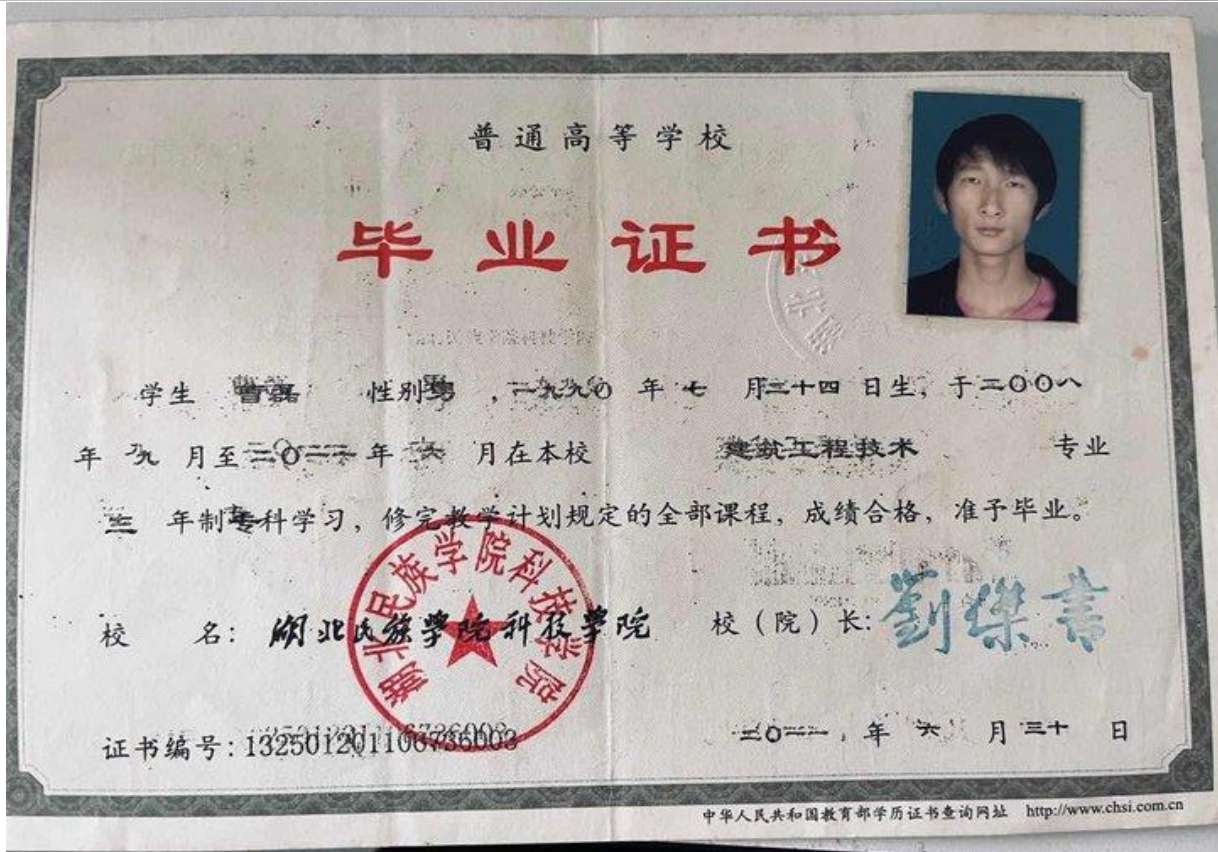 普通高等学校
毕业证书
学生 曹磊 性别男，一九九〇年七月二十四日生，于二〇〇八
年九月至二〇一一年六月在本校 建筑工程技术 专业
三年制专科学习，修完教学计划规定的全部课程，成绩合格，准予毕业。
湖北民族学院科技学院
校 名：湖北民族学院科技学院 校（院）长：劉傑書
证书编号：132501201106736003 二〇一一年六月三十日
中华人民共和国教育部学历证书查询网址 http://www.chsi.com.cn